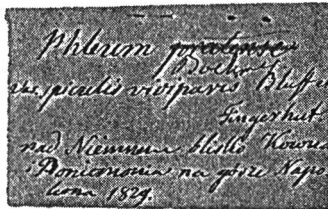 Phleum pratense
Boehmeri
var. spiculis viviparis Bluff et
Fingerhut
nad Niemnem blisko Kowna
i Poniemonia na górze Napo
leona 1829.